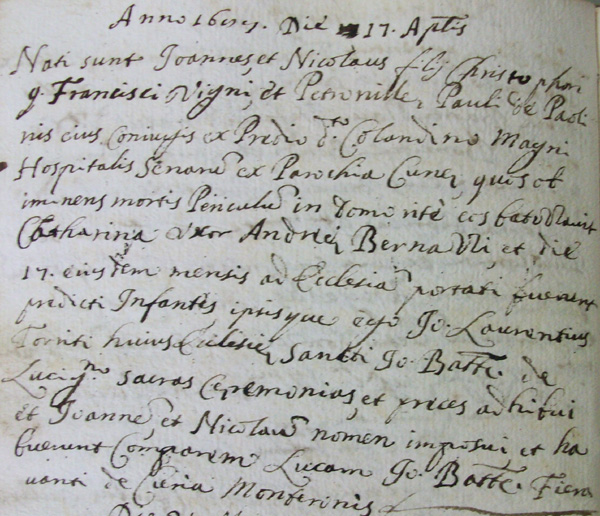 Die 17. Aplis
Nati sunt Joannes, et Nicolaus filij Christophori
q. Francisci Vigni, et Petronillę Pauli de Paoli
nis eius Coniugis ex Predio d.to Colandino Magni
Hospitalis Senane ex Parochia Cune, quos ob
iminens mortis Periculũ in domo ritè eos batizzavit
Catharina Uxor Andreę Bernazzi, et die
17. eiusdem mensis ad Ecclesiã portati fuerunt
predicti Infantes ipsisque ego Jo. Laurentius
huius Ecclesię Sancti Jo. Batte. de
Lucig.no sacras Cęremonias, et preces adhibui
et Joanne, et Nicolaũ nomen imposui et ha
buerunt Comparem Lucam Jo. Batte. Fiera
vanti de Curia Monteronis